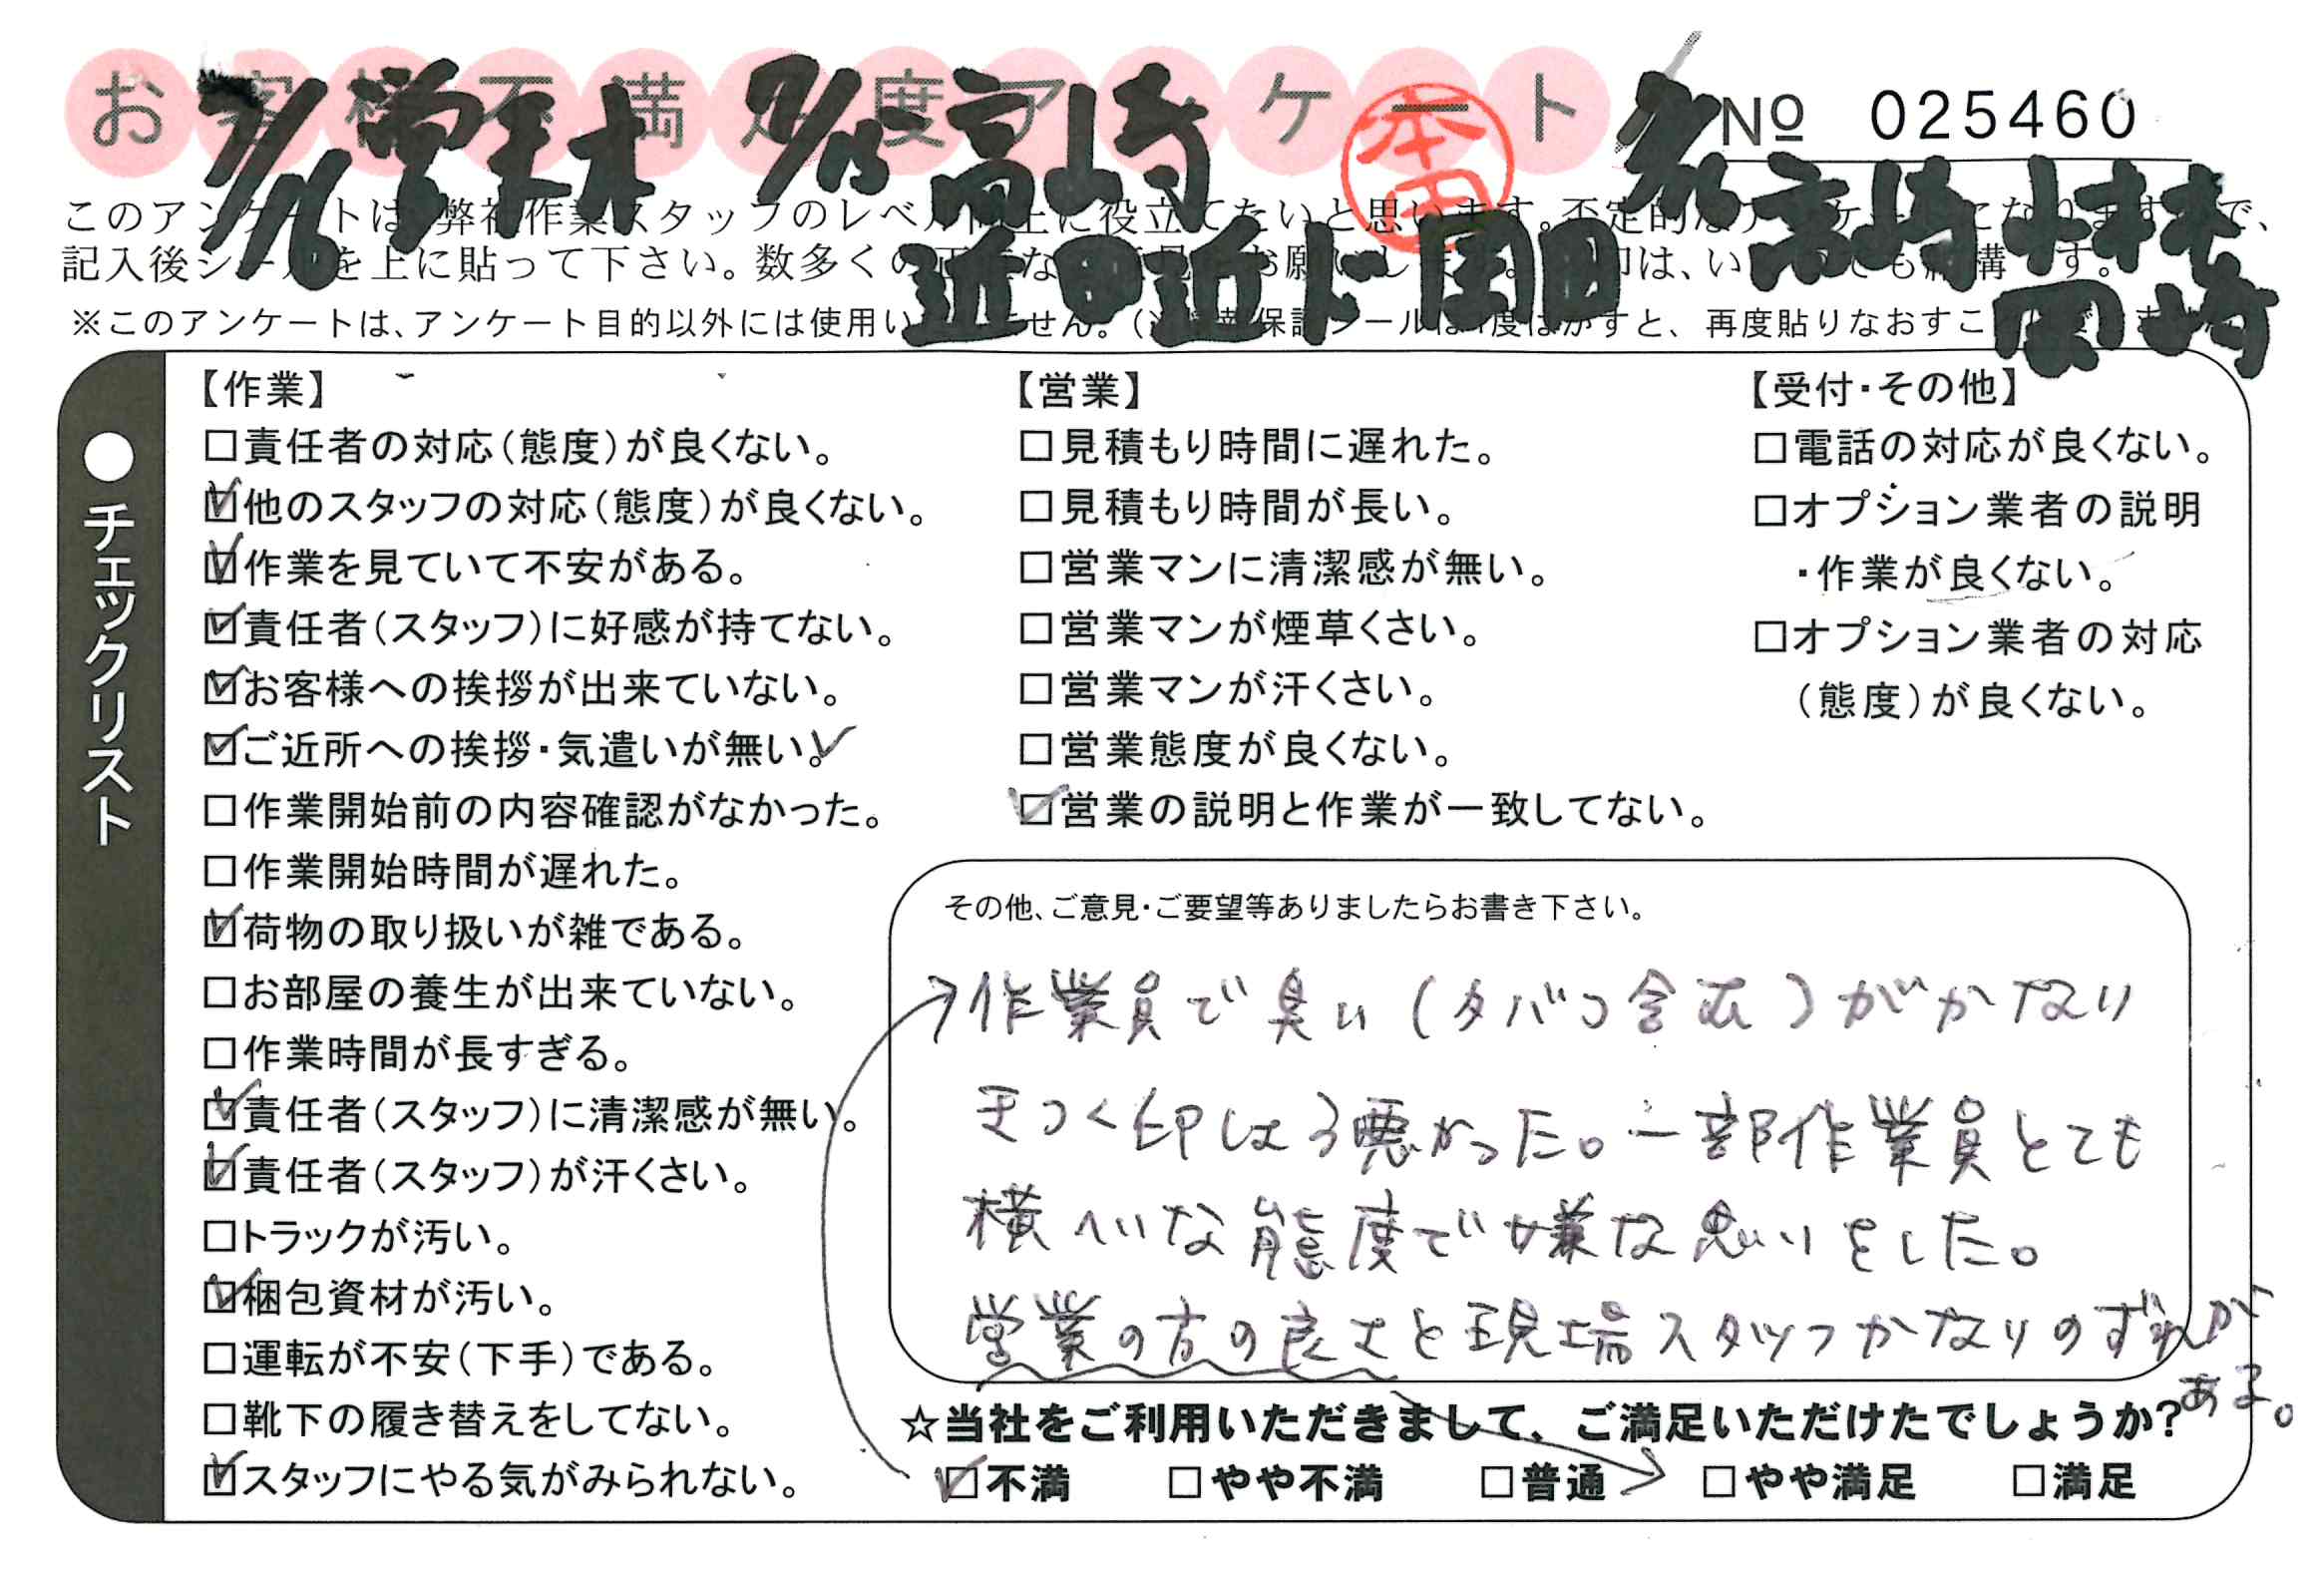 お客様不満足度アンケート
№ 025460
7/16 営 本木 7/15 高崎
本田
高崎 小林
近田 近ド 園田
岡崎
このアンケートは、弊社作業スタッフのレベル向上に役立てたいと思います。不定的なアンケートになりますので、
記入後シールを上に貼って下さい。数多くの正直なご意見をお願いします。
※このアンケートは、アンケート目的以外には使用いたしません。
保護シールは1度はがすと、再度貼りなおすこ
●チェックリスト
【作業】
□責任者の対応(態度)が良くない。
☑他のスタッフの対応(態度)が良くない。
☑作業を見ていて不安がある。
☑責任者(スタッフ)に好感が持てない。
☑お客様への挨拶が出来ていない。
☑ご近所への挨拶・気遣いが無い。✓
□作業開始前の内容確認がなかった。
□作業開始時間が遅れた。
☑荷物の取り扱いが雑である。
□お部屋の養生が出来ていない。
□作業時間が長すぎる。
☑責任者(スタッフ)に清潔感が無い。
☑責任者(スタッフ)が汗くさい。
□トラックが汚い。
☑梱包資材が汚い。
□運転が不安(下手)である。
□靴下の履き替えをしてない。
☑スタッフにやる気がみられない。
【営業】
□見積もり時間に遅れた。
□見積もり時間が長い。
□営業マンに清潔感が無い。
□営業マンが煙草くさい。
□営業マンが汗くさい。
□営業態度が良くない。
☑営業の説明と作業が一致してない。
【受付・その他】
□電話の対応が良くない。
□オプション業者の説明
・作業が良くない。
□オプション業者の対応
(態度)が良くない。
その他、ご意見・ご要望等ありましたらお書き下さい。
→作業員で臭い(タバコ含む)がかなり
きつく印しょう悪かった。一部作業員とても
横へいな態度で嫌な思いをした。
営業の方の良さと現場スタッフかなりのずれが
ある。
☆当社をご利用いただきまして、ご満足いただけたでしょうか?
☑不満 □やや不満 □普通 □やや満足 □満足